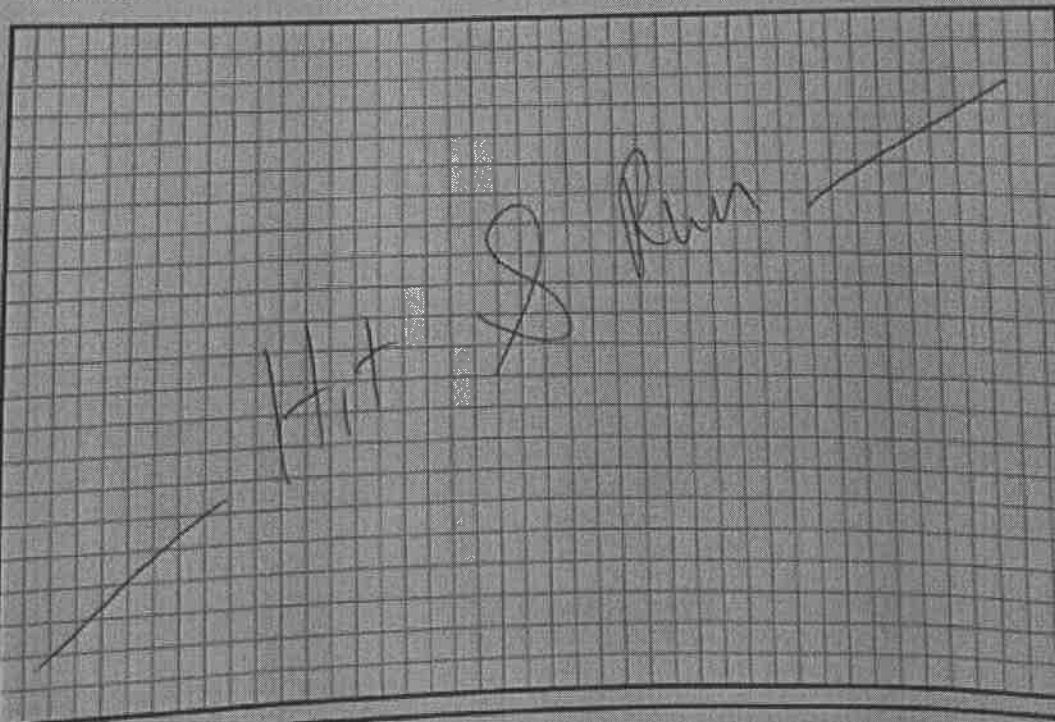 Hit & Run